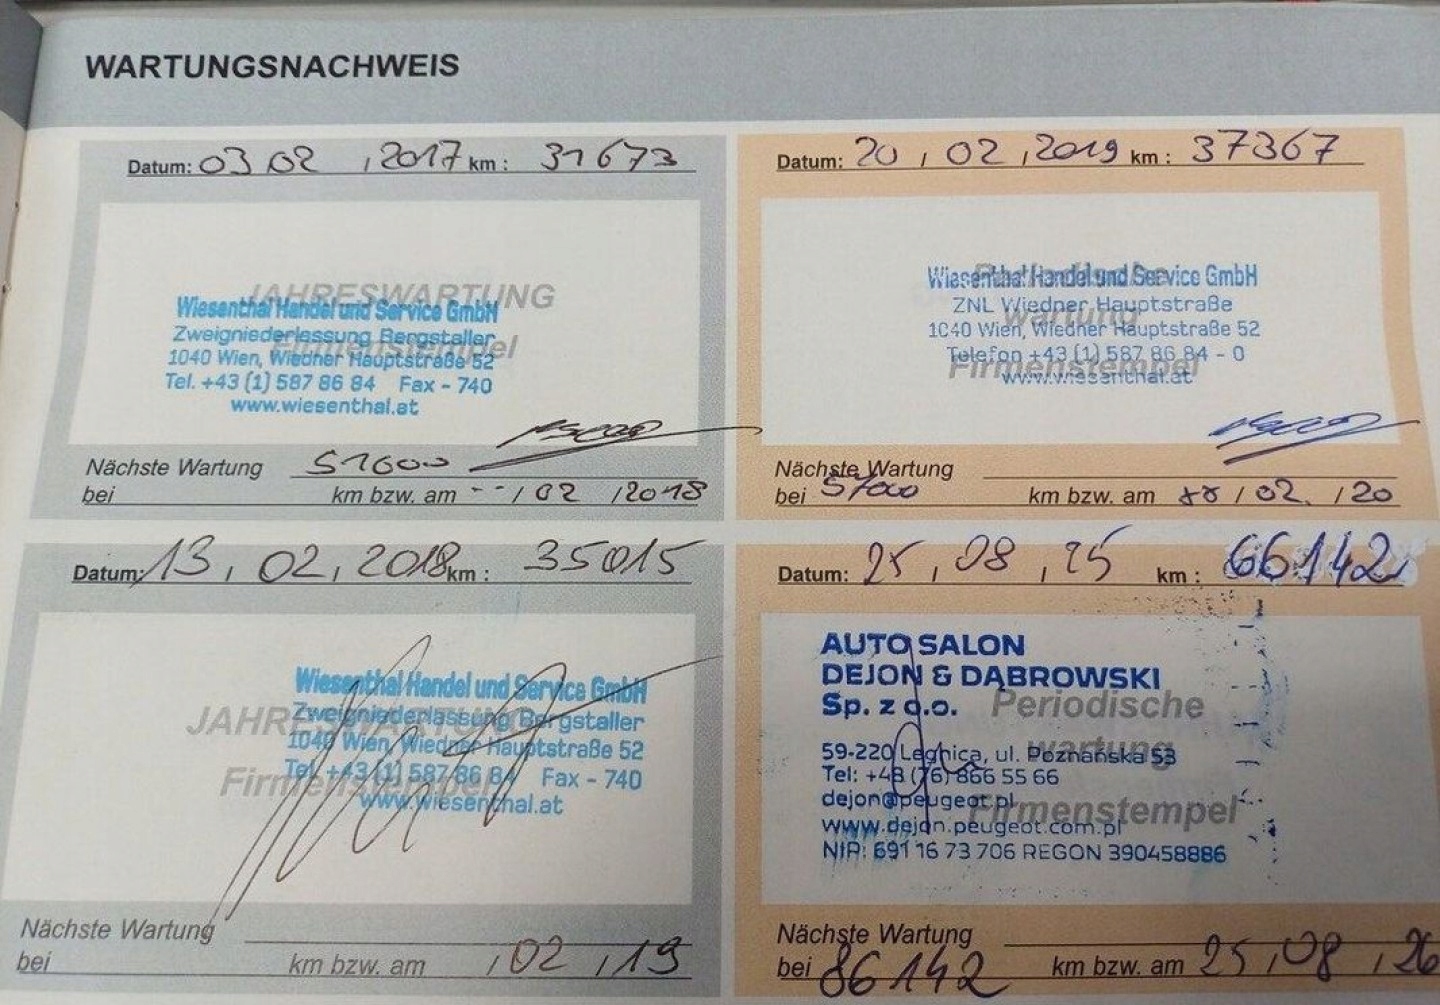 WARTUNGSNACHWEIS
Datum: 03 02 , 2017 km : 31673
JAHRESWARTUNG
Firmenstempel
Wiesenthal Handel und Service GmbH
Zweigniederlassung Bergstaller
1040 Wien, Wiedner Hauptstraße 52
Tel. +43 (1) 587 86 84 Fax - 740
www.wiesenthal.at
Nächste Wartung 51600
bei km bzw. am -- / 02 / 2018
Datum: 20 , 02 , 2019 km : 37367
Periodische
wartung
Firmenstempel
Wiesenthal Handel und Service GmbH
ZNL Wiedner Hauptstraße
1040 Wien, Wiedner Hauptstraße 52
Telefon +43 (1) 587 86 84 - 0
www.wiesenthal.at
Nächste Wartung
bei 57000 km bzw. am / 02. / 20
Datum: 13 , 02 , 2018 km : 35015
JAHRESWARTUNG
Firmenstempel
Wiesenthal Handel und Service GmbH
Zweigniederlassung Bergstaller
1040 Wien, Wiedner Hauptstraße 52
Tel. +43 (1) 587 86 84 Fax - 740
www.wiesenthal.at
Nächste Wartung
bei km bzw. am , 02 , 19
Datum: 25 , 08 , 25 km : 66142
Periodische
wartung
Firmenstempel
AUTO SALON
DEJON & DĄBROWSKI
Sp. z o.o.
59-220 Legnica, ul. Poznańska 53
Tel: +48 (76) 866 55 66
dejon@peugeot.pl
www.dejon.peugeot.com.pl
NIP: 691 16 73 706 REGON 390458886
Nächste Wartung
bei 86142 km bzw. am 25 , 08 , 26